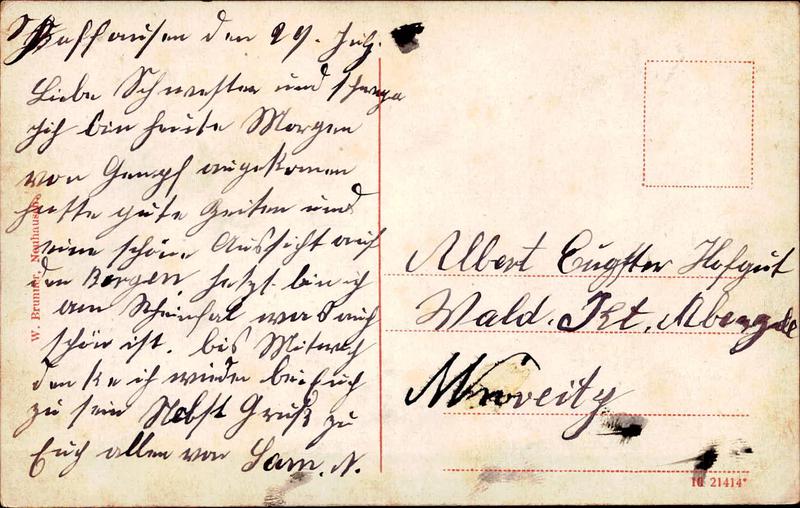 Schaffhausen den 29. July.
Liebe Schwester und
Ich bin heute Morgen
von Genpf angekomen
hatte gute Zeiten und
eine schöne Aussicht auf
den Bergen jetzt bin ich
am Rheinfal was auch
schön ist. bis Mitwch
denke ich wieder bei Euch
zu sein Nebst Gruß zu
Euch allen von Sam. N.
W. Brunner, Neuhausen
Albert Eugster Hofgut
Wald. Kt.
10 21414*